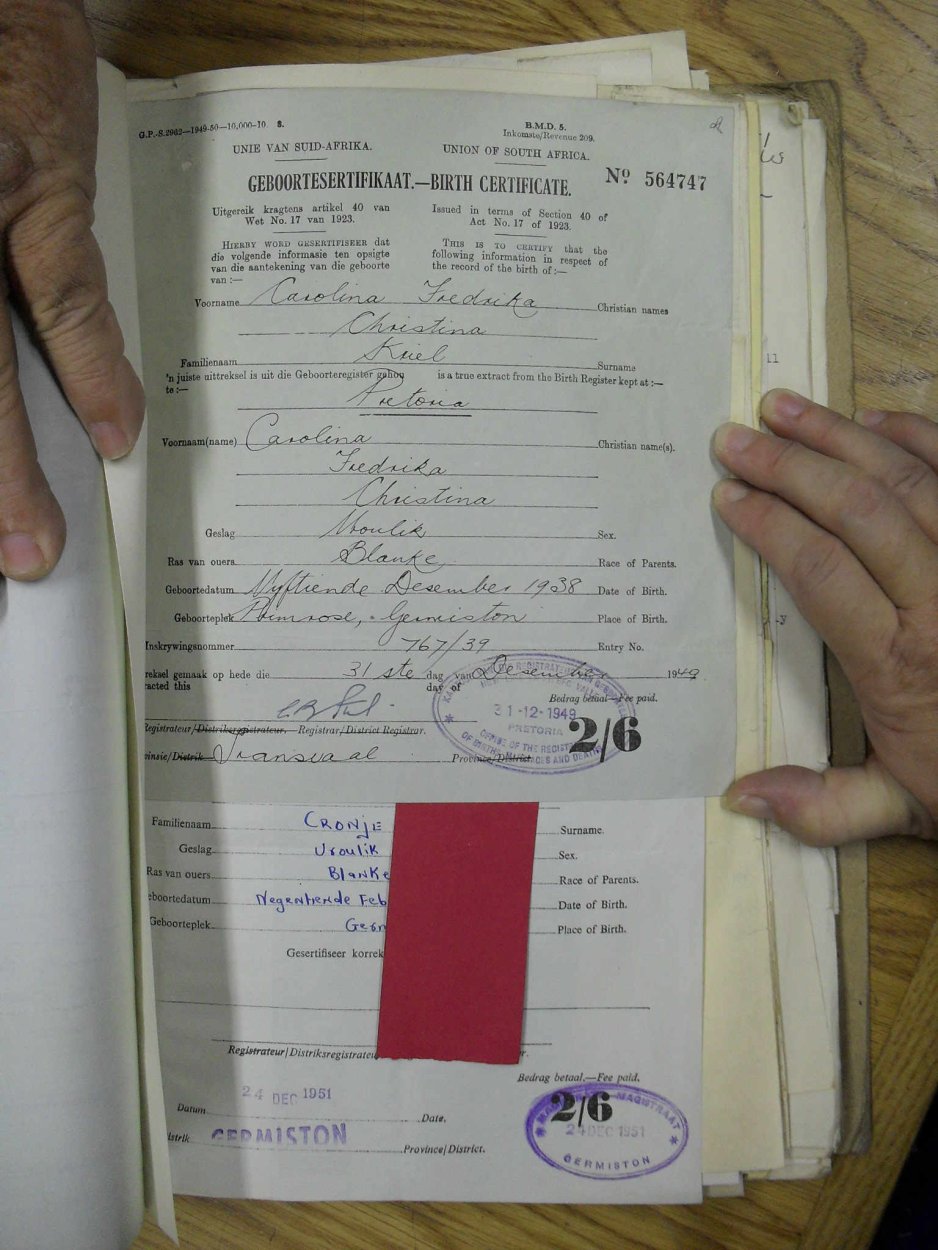 G.P.-S.2962—1949-50—10,000-10. S.
B.M.D. 5.
Inkomste/Revenue 209.
UNIE VAN SUID-AFRIKA.
UNION OF SOUTH AFRICA.
GEBOORTESERTIFIKAAT.—BIRTH CERTIFICATE.
No 564747
Uitgereik kragtens artikel 40 van
Wet No. 17 van 1923.
Issued in terms of Section 40 of
Act No. 17 of 1923.
HIERBY WORD GESERTIFISEER dat
die volgende informasie ten opsigte
van die aantekening van die geboorte
van :—
THIS IS TO CERTIFY that the
following information in respect of
the record of the birth of :—
Voorname Carolina Fredrika Christian names
Christina
Familienaam Kriel Surname
'n juiste uittreksel is uit die Geboorteregister gehou is a true extract from the Birth Register kept at :—
te :—
Pretoria
Voornaam(name) Carolina Christian name(s).
Fredrika
Christina
Geslag Vroulik Sex.
Ras van ouers Blanke Race of Parents.
Geboortedatum Vyftiende Desember 1938 Date of Birth.
Geboorteplek Primrose, Germiston Place of Birth.
Inskrywingsnommer 767/39 Entry No.
reksel gemaak op hede die 31 ste dag van Desember 1949
racted this day of
Bedrag betaal—Fee paid.
31-12-1949
PRETORIA
OFFICE OF THE REGISTRAR
OF BIRTHS, MARRIAGES AND DEATHS
2/6
Registrateur/Distriksregistrateur. Registrar/District Registrar.
vinsie/Distrik Transvaal Province/District
Familienaam CRONJE Surname.
Geslag Vroulik Sex.
Ras van ouers Blanke Race of Parents.
eboortedatum Negentiende Feb Date of Birth.
Geboorteplek Ger Place of Birth.
Gesertifiseer korrek
Registrateur/Distriksregistrateur r.
Bedrag betaal.—Fee paid.
2/6
24 DEC 1951
Datum Date.
istrik GERMISTON Province/District.
MAGISTRAAT
24 DEC 1951
GERMISTON